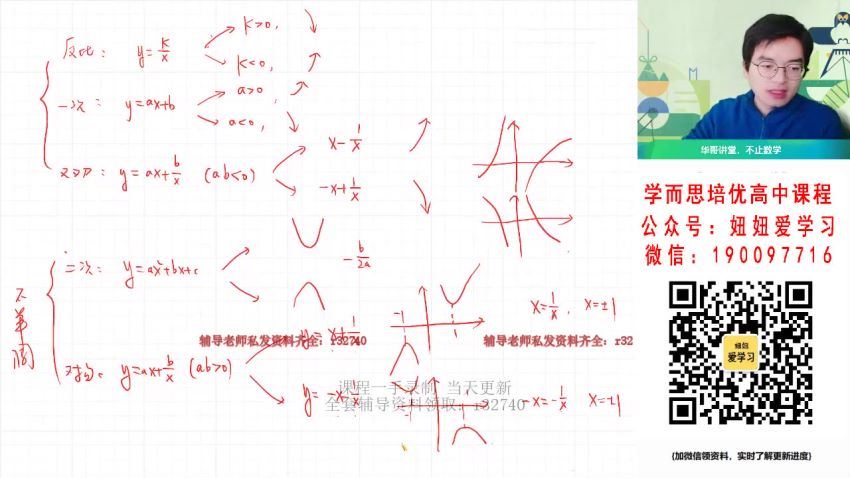 反比： y=k/x
k>0，
k<0，
一次： y=ax+b
a>0，
a<0，
双刀： y=ax+b/x (ab<0)
x-1/x
-x+1/x
二次： y=ax²+bx+c
-b/2a
不单调
对勾： y=ax+b/x (ab>0)
y=x+1/x
-1
1
x=1/x， x=±1
y=-x-1/x
-1
1
-x=-1/x x=±1
辅导老师私发资料齐全：r32740
辅导老师私发资料齐全：r32
课程一手录制 当天更新
全套辅导资料领取：r32740
华哥讲堂，不止数学
学而思培优高中课程
公众号：妞妞爱学习
微信：190097716
妞妞
爱学习
(加微信领资料，实时了解更新进度)